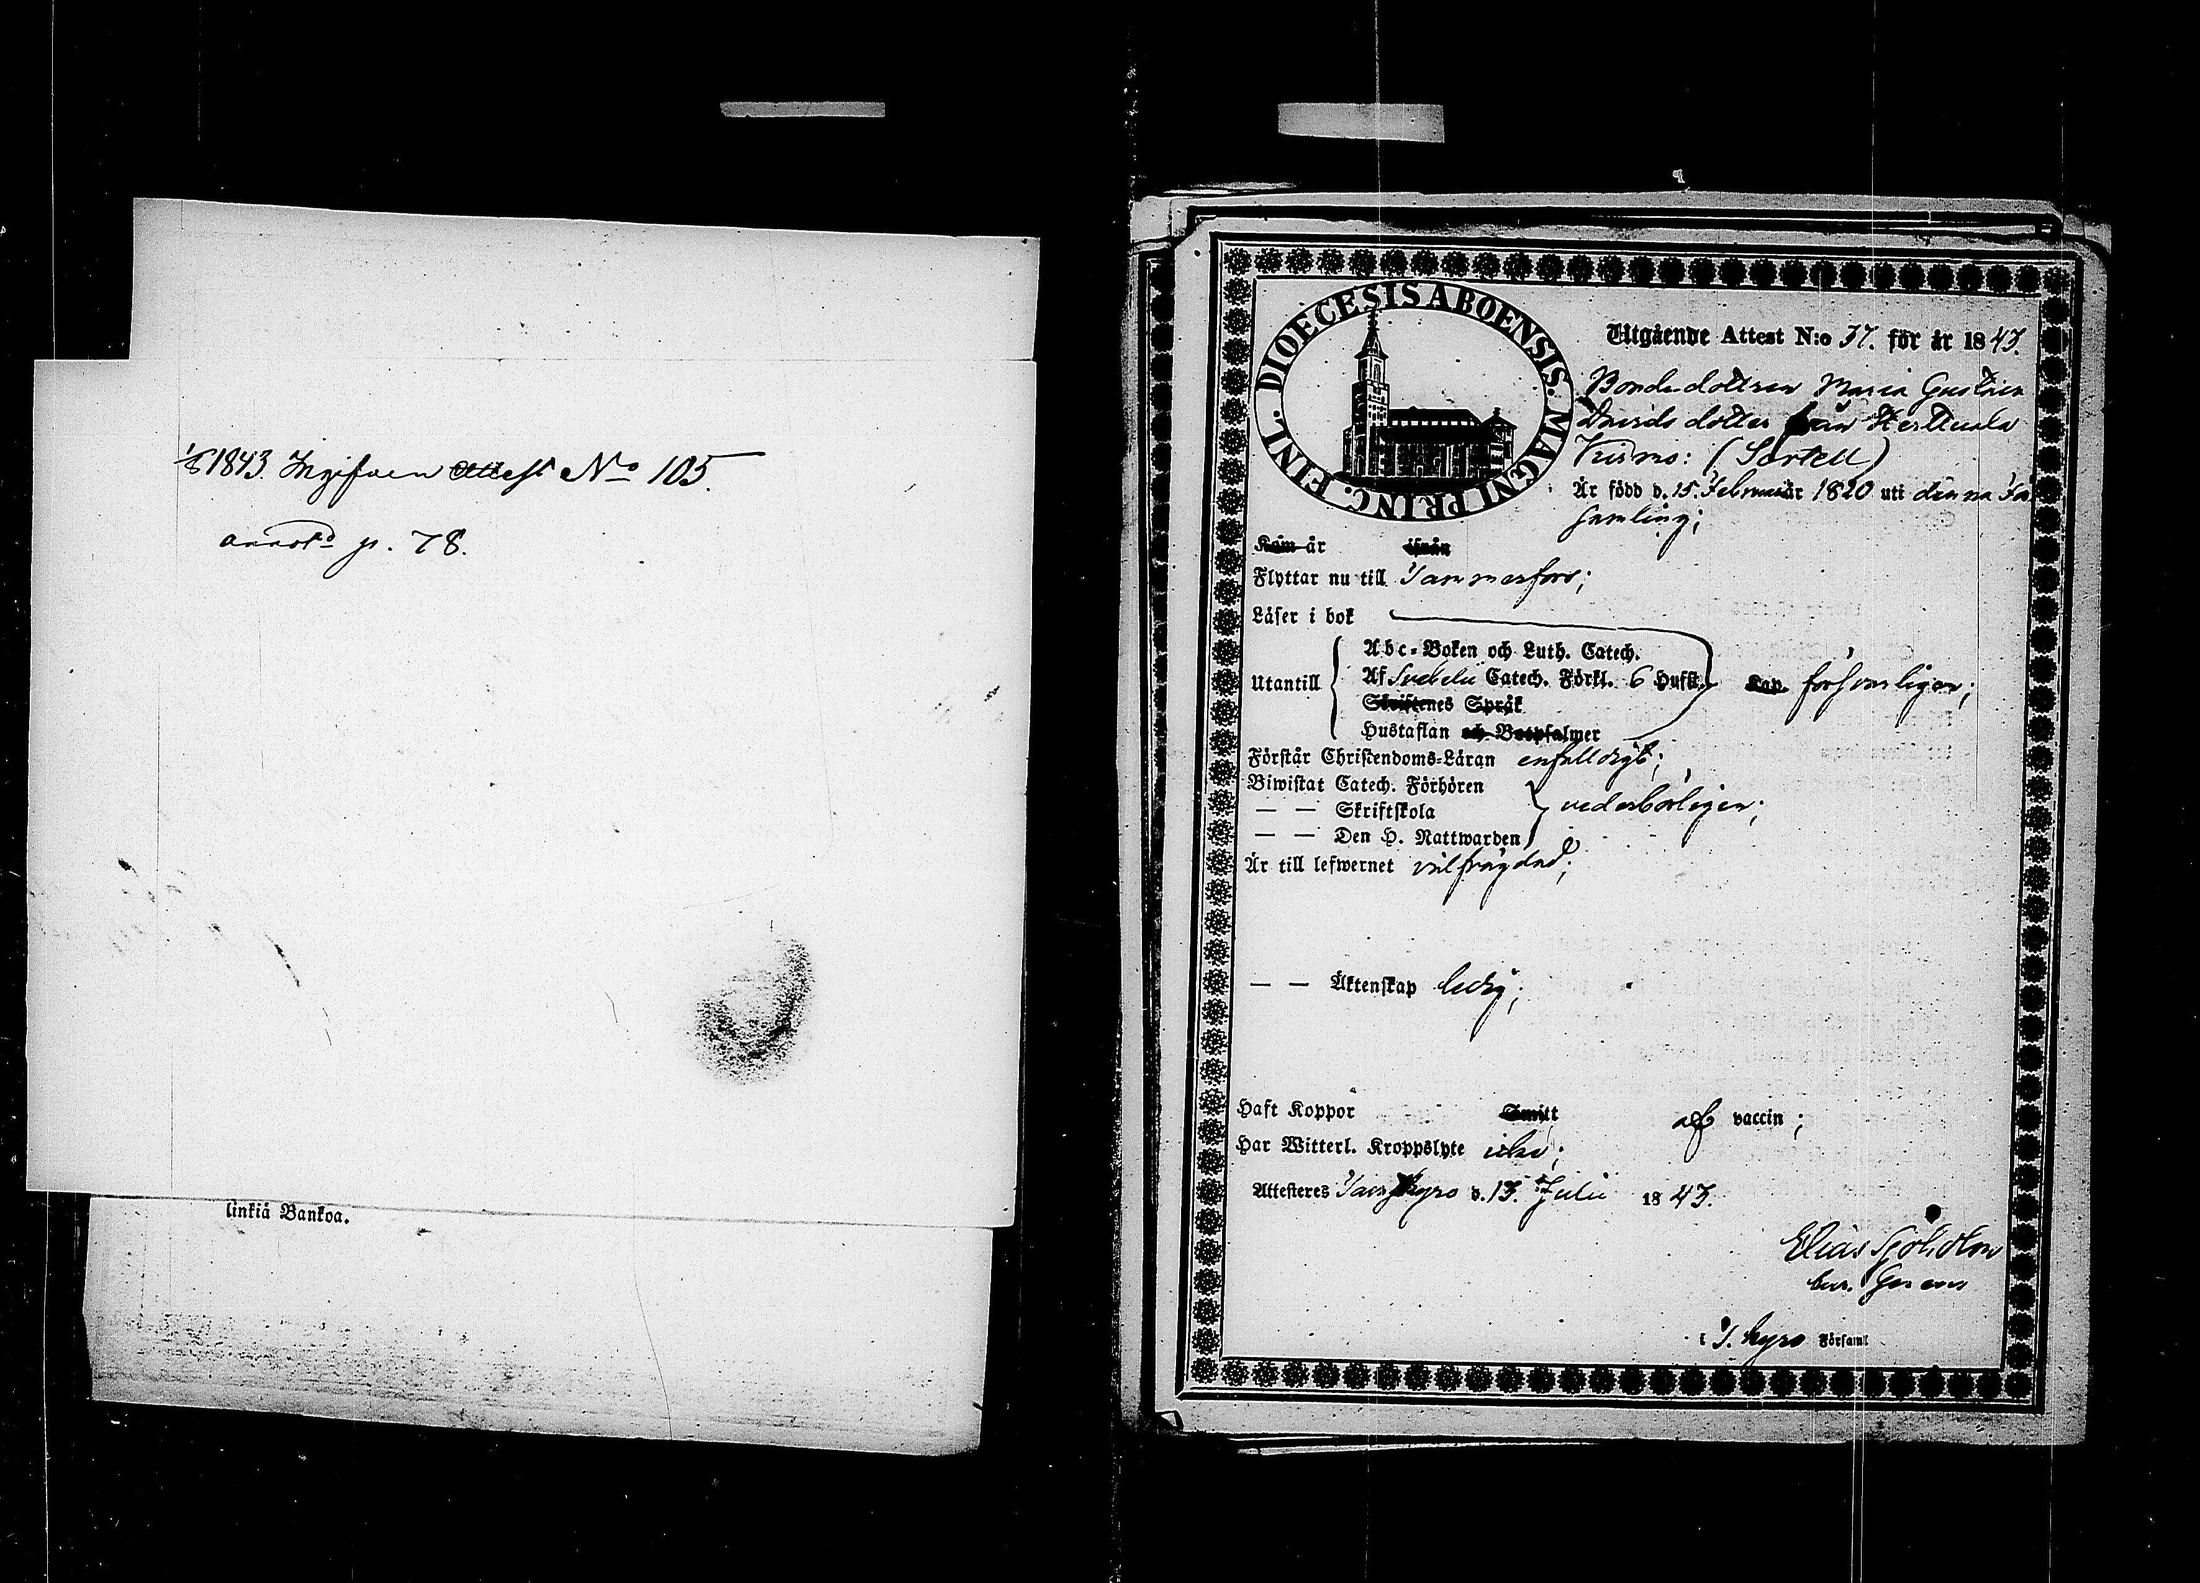 1843. Ingifven Attest No 105.
annotd p. 78.
linkiä Bankoa.
DIOECESIS ABOENSIS. MAGNI PRINC. FINL.
Utgående Attest N:o 37. för år 1843.
Bondedottren Maria Gustava
Davids dotter från Herttuala
Kusmo: (Sortell)
Är född d. 15. Februar 1820 uti denna För
samling;
Kom år ifrån
Flyttar nu till Tammerfors;
Läser i bok
Abc-Boken och Luth. Catech.
Utantill Af Svebelii Catech. Förkl. 6 Hufst. Cap. försvarligen;
Skriftenes Språk
Hustaflan och Botpsalmer
Förstår Christendoms-Läran enfalldigt;
Biwistat Catech. Förhören
— — Skriftskola vederbörligen;
— — Den H. Nattwarden
Är till lefwernet välfrägdad;
— — Äktenskap ledig;
Haft Koppor Smitt af vaccin;
Har Witterl. Kroppslyte icke;
Attesteres Tavastkyro d. 13. Julii 1843.
Elias Sjöholm
i T. kyro Församl